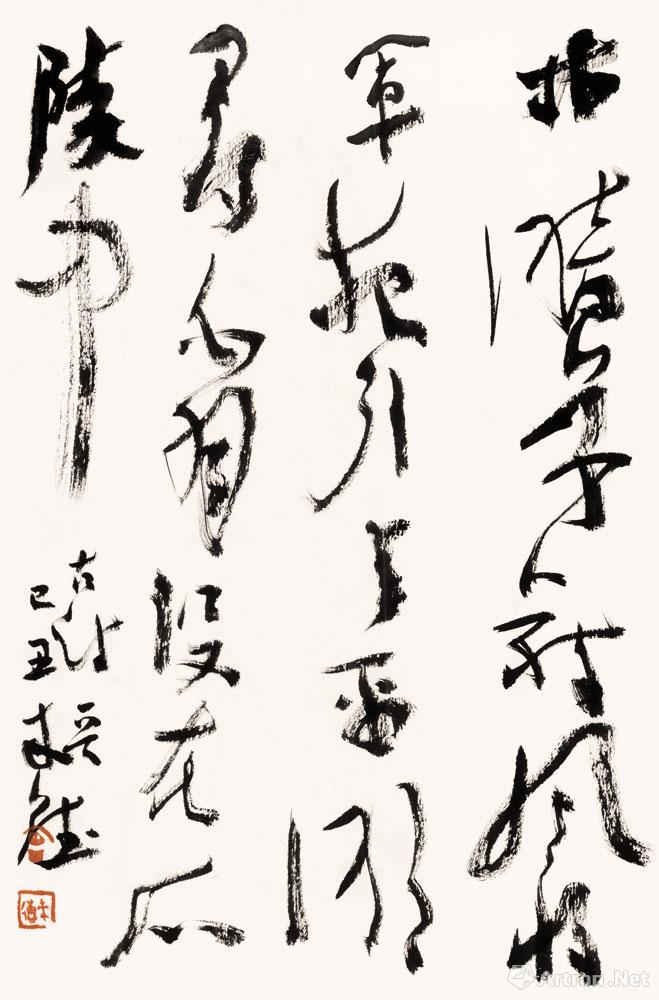 林暗草驚風將
軍夜引弓平明
尋白羽沒在石
陵中
古詩
己丑
Artron.Net